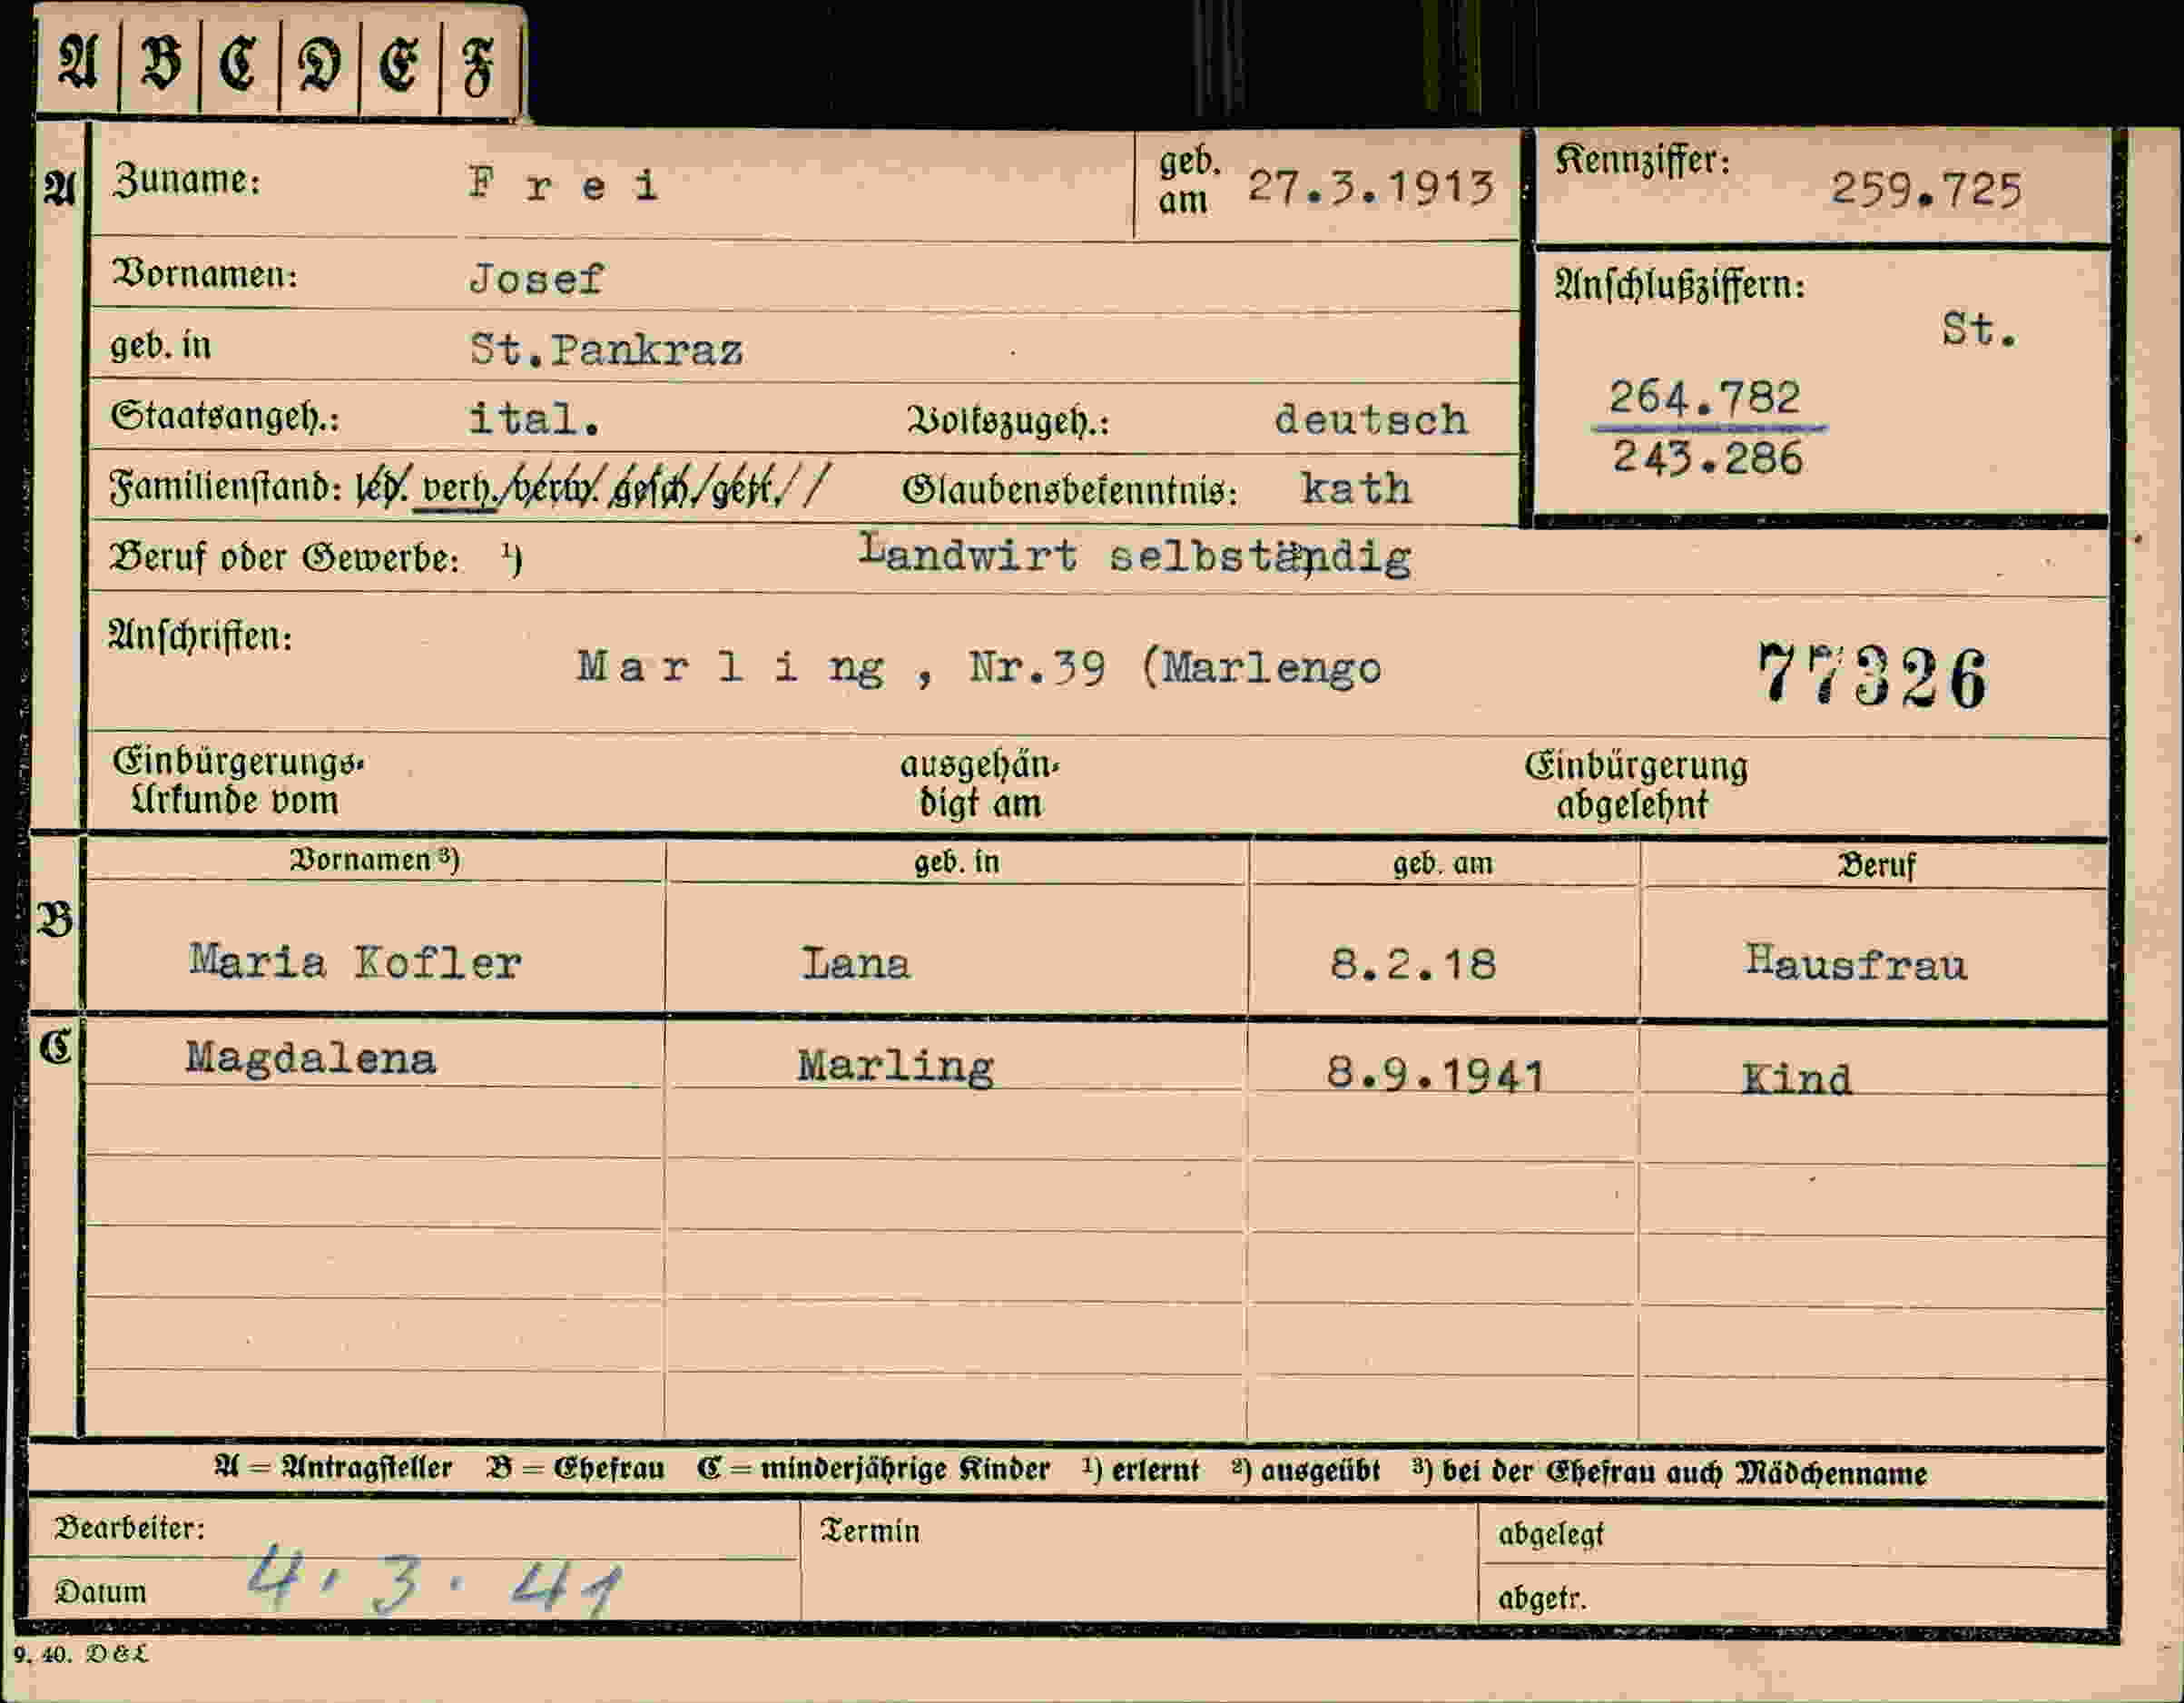 A B C D E F
A Zuname: Frei geb. am 27.3.1913 Kennziffer: 259.725
Vornamen: Josef Anschlußziffern:
St.
geb. in St.Pankraz
Staatsangeh.: ital. Volkszugeh.: deutsch 264.782
243.286
Familienstand: led. verh./verw. gesch./getr./ / Glaubensbekenntnis: kath
Beruf oder Gewerbe: ¹) Landwirt selbständig
Anschriften:
Marling, Nr.39 (Marlengo 77326
Einbürgerungs- ausgehän- Einbürgerung
Urkunde vom digt am abgelehnt
Vornamen ³) geb. in geb. am Beruf
B
Maria Kofler Lana 8.2.18 Hausfrau
C Magdalena Marling 8.9.1941 Kind
A = Antragsteller B = Ehefrau C = minderjährige Kinder ¹) erlernt ²) ausgeübt ³) bei der Ehefrau auch Mädchenname
Bearbeiter: Termin abgelegt
Datum 4.3.41 abgetr.
9. 40. D & L